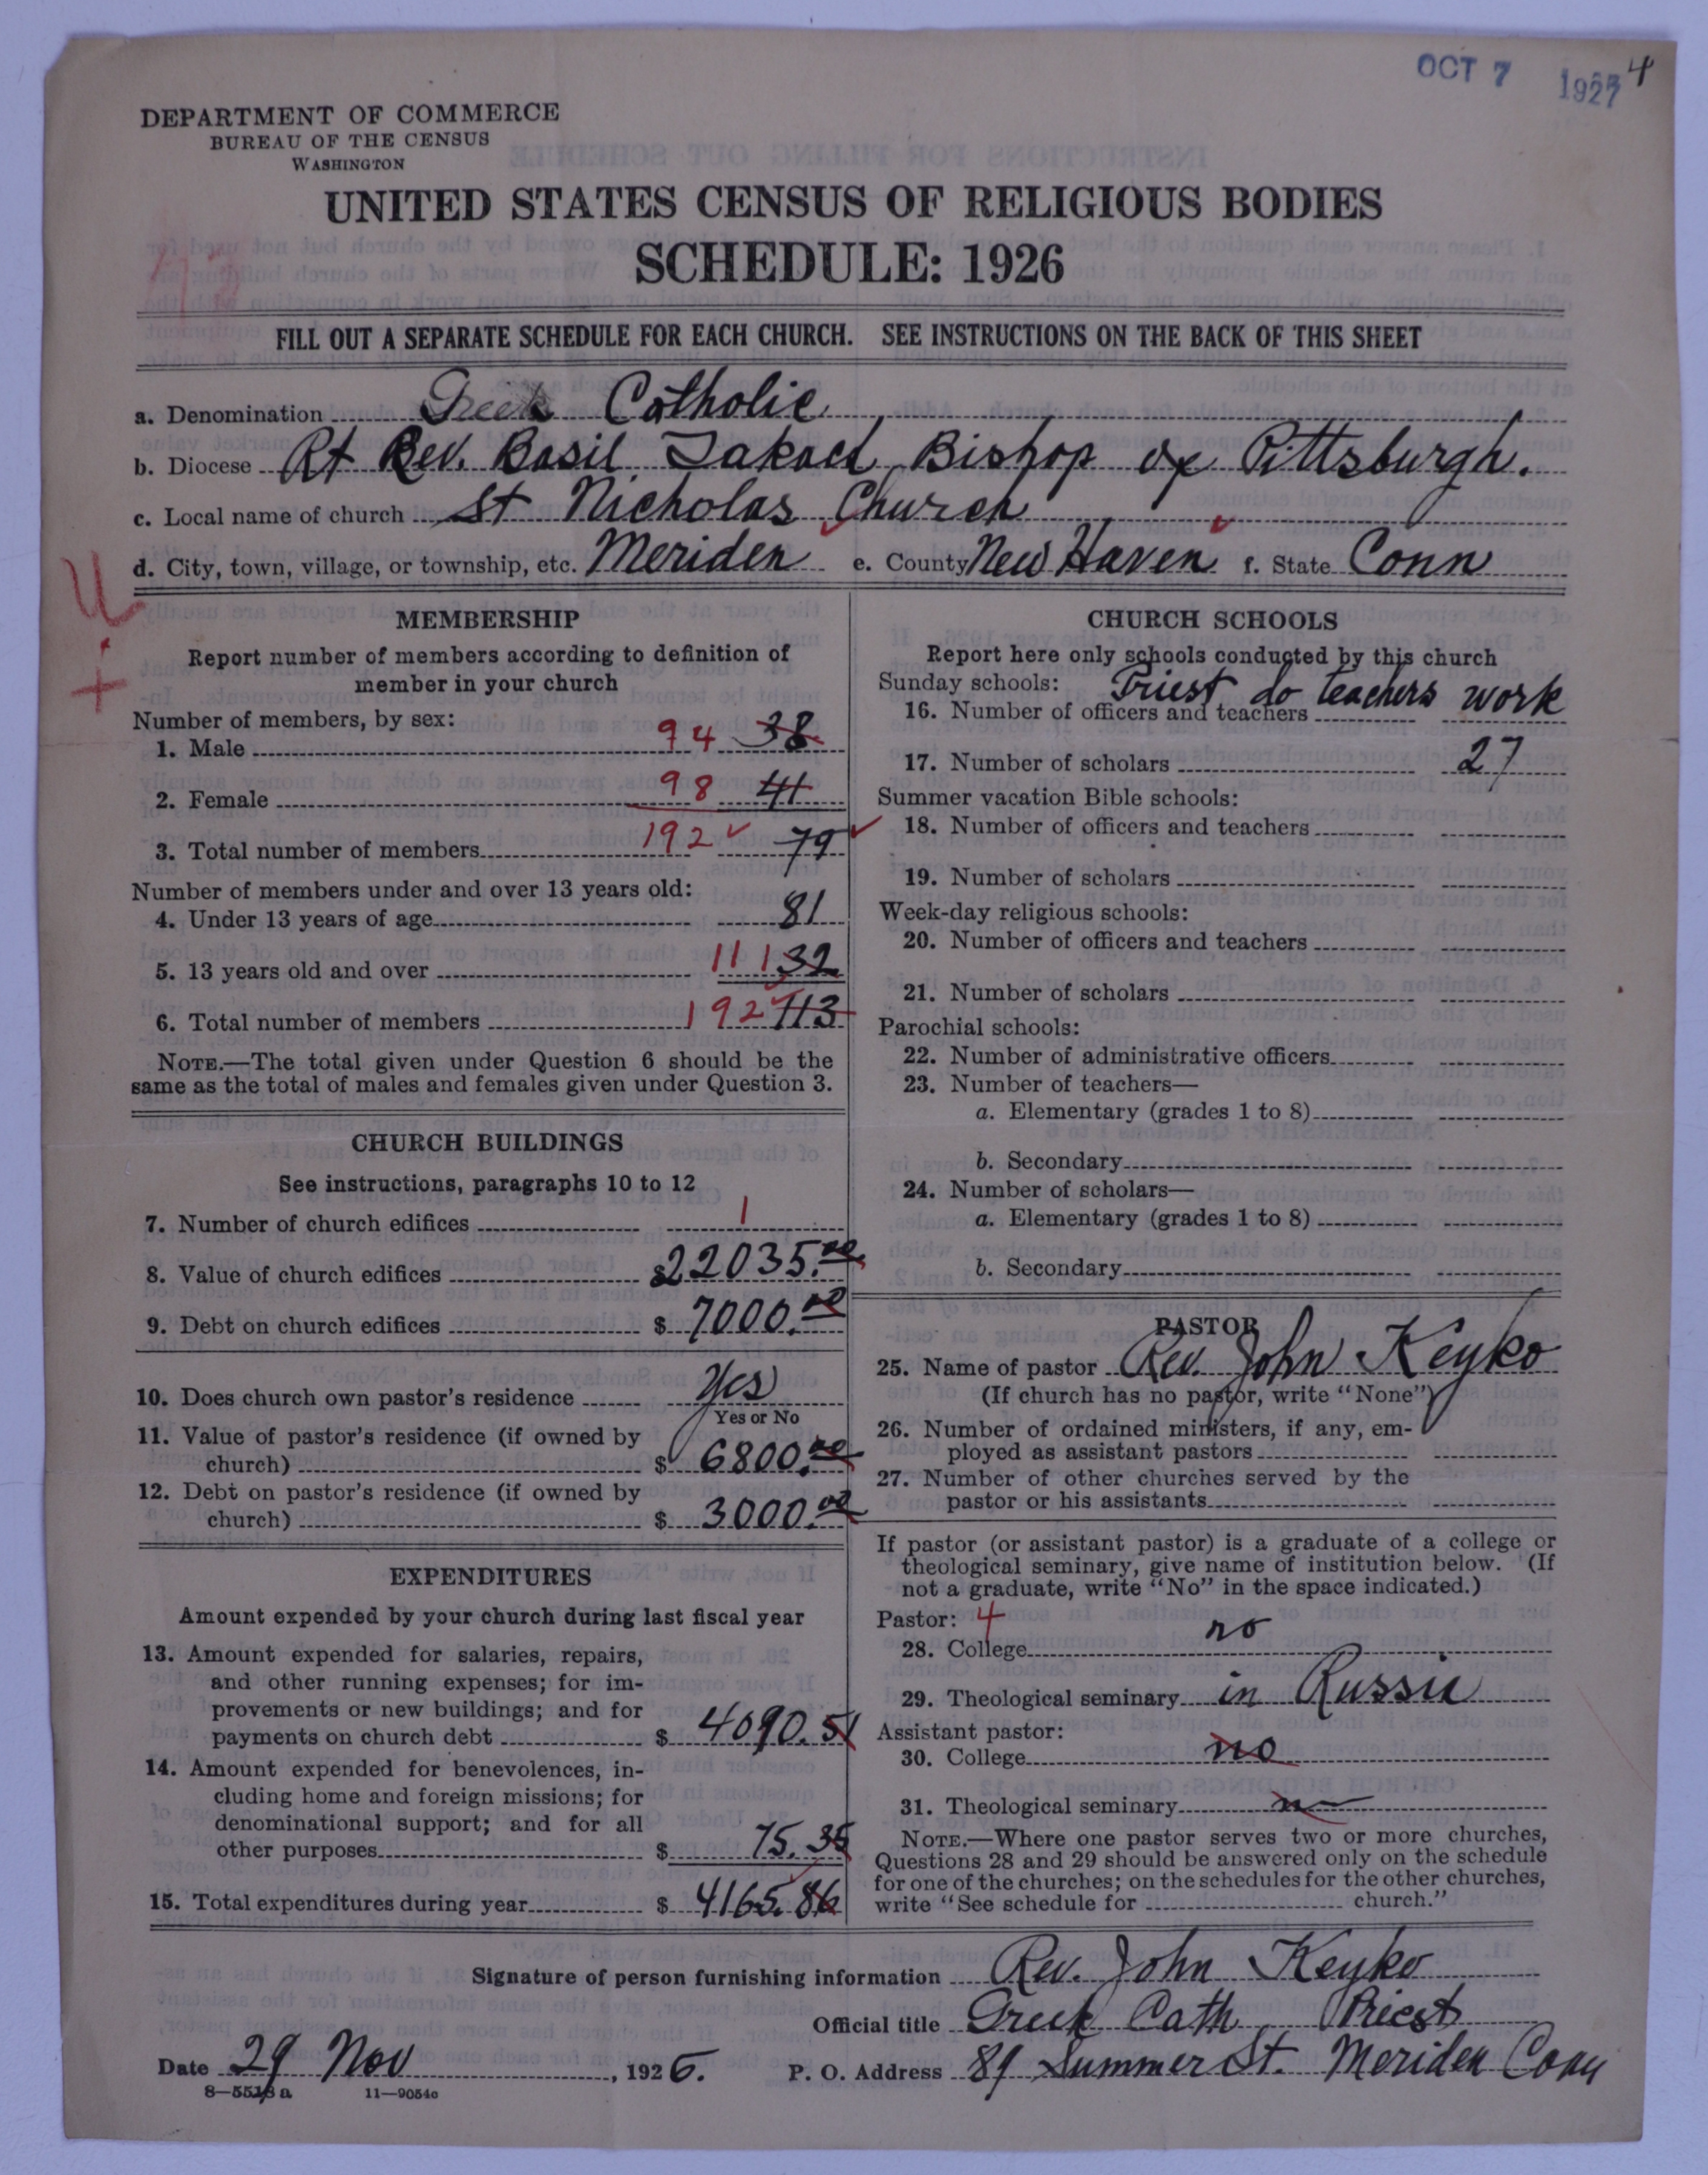 OCT 7 1927 4
DEPARTMENT OF COMMERCE
BUREAU OF THE CENSUS
WASHINGTON
UNITED STATES CENSUS OF RELIGIOUS BODIES
SCHEDULE: 1926
FILL OUT A SEPARATE SCHEDULE FOR EACH CHURCH. SEE INSTRUCTIONS ON THE BACK OF THIS SHEET
a. Denomination Greek Catholic
b. Diocese Rt Rev. Basil Takach, Bishop of Pittsburgh.
c. Local name of church St Nicholas Church
d. City, town, village, or township, etc. Meriden e. County New Haven f. State Conn
MEMBERSHIP
Report number of members according to definition of
member in your church
Number of members, by sex:
1. Male 94 38
2. Female 98 41
3. Total number of members 192 79
Number of members under and over 13 years old:
4. Under 13 years of age 81
5. 13 years old and over 111 32
6. Total number of members 192 113
NOTE.—The total given under Question 6 should be the
same as the total of males and females given under Question 3.
CHURCH BUILDINGS
See instructions, paragraphs 10 to 12
7. Number of church edifices 1
8. Value of church edifices $22035.00
9. Debt on church edifices $ 7000.00
10. Does church own pastor's residence Yes
Yes or No
11. Value of pastor's residence (if owned by
church) $ 6800.00
12. Debt on pastor's residence (if owned by
church) $ 3000.00
EXPENDITURES
Amount expended by your church during last fiscal year
13. Amount expended for salaries, repairs,
and other running expenses; for im-
provements or new buildings; and for
payments on church debt $ 4090.51
14. Amount expended for benevolences, in-
cluding home and foreign missions; for
denominational support; and for all
other purposes $ 75.35
15. Total expenditures during year $ 4165.86
CHURCH SCHOOLS
Report here only schools conducted by this church
Sunday schools: Priest do teachers work
16. Number of officers and teachers
17. Number of scholars 27
Summer vacation Bible schools:
18. Number of officers and teachers
19. Number of scholars
Week-day religious schools:
20. Number of officers and teachers
21. Number of scholars
Parochial schools:
22. Number of administrative officers
23. Number of teachers—
a. Elementary (grades 1 to 8)
b. Secondary
24. Number of scholars—
a. Elementary (grades 1 to 8)
b. Secondary
PASTOR
25. Name of pastor Rev. John Keyko
(If church has no pastor, write "None")
26. Number of ordained ministers, if any, em-
ployed as assistant pastors
27. Number of other churches served by the
pastor or his assistants
If pastor (or assistant pastor) is a graduate of a college or
theological seminary, give name of institution below. (If
not a graduate, write "No" in the space indicated.)
Pastor: 4
28. College no
29. Theological seminary in Russia
Assistant pastor:
30. College no
31. Theological seminary
NOTE.—Where one pastor serves two or more churches,
Questions 28 and 29 should be answered only on the schedule
for one of the churches; on the schedules for the other churches,
write "See schedule for church."
Signature of person furnishing information Rev. John Keyko
Official title Greek Cath Priest
Date 29 Nov, 1926. P. O. Address 89 Summer St. Meriden Conn
8—5513 a 11—9054c